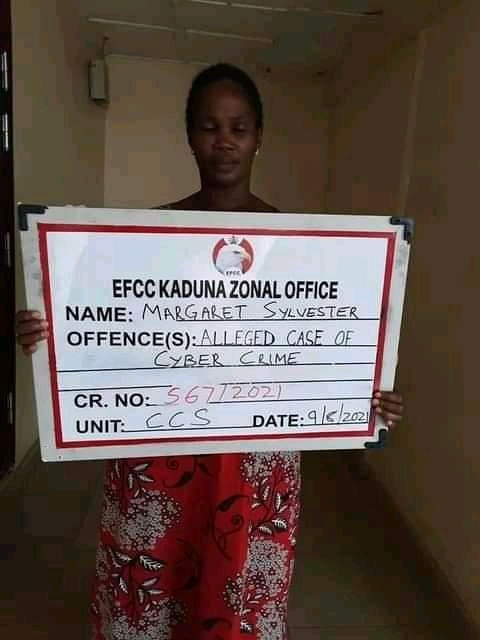 EFCC
EFCC KADUNA ZONAL OFFICE
NAME: MARGARET SYLVESTER
OFFENCE(S): ALLEGED CASE OF
CYBER CRIME
CR. NO: 567/2021
UNIT: CCS DATE: 9/8/2021